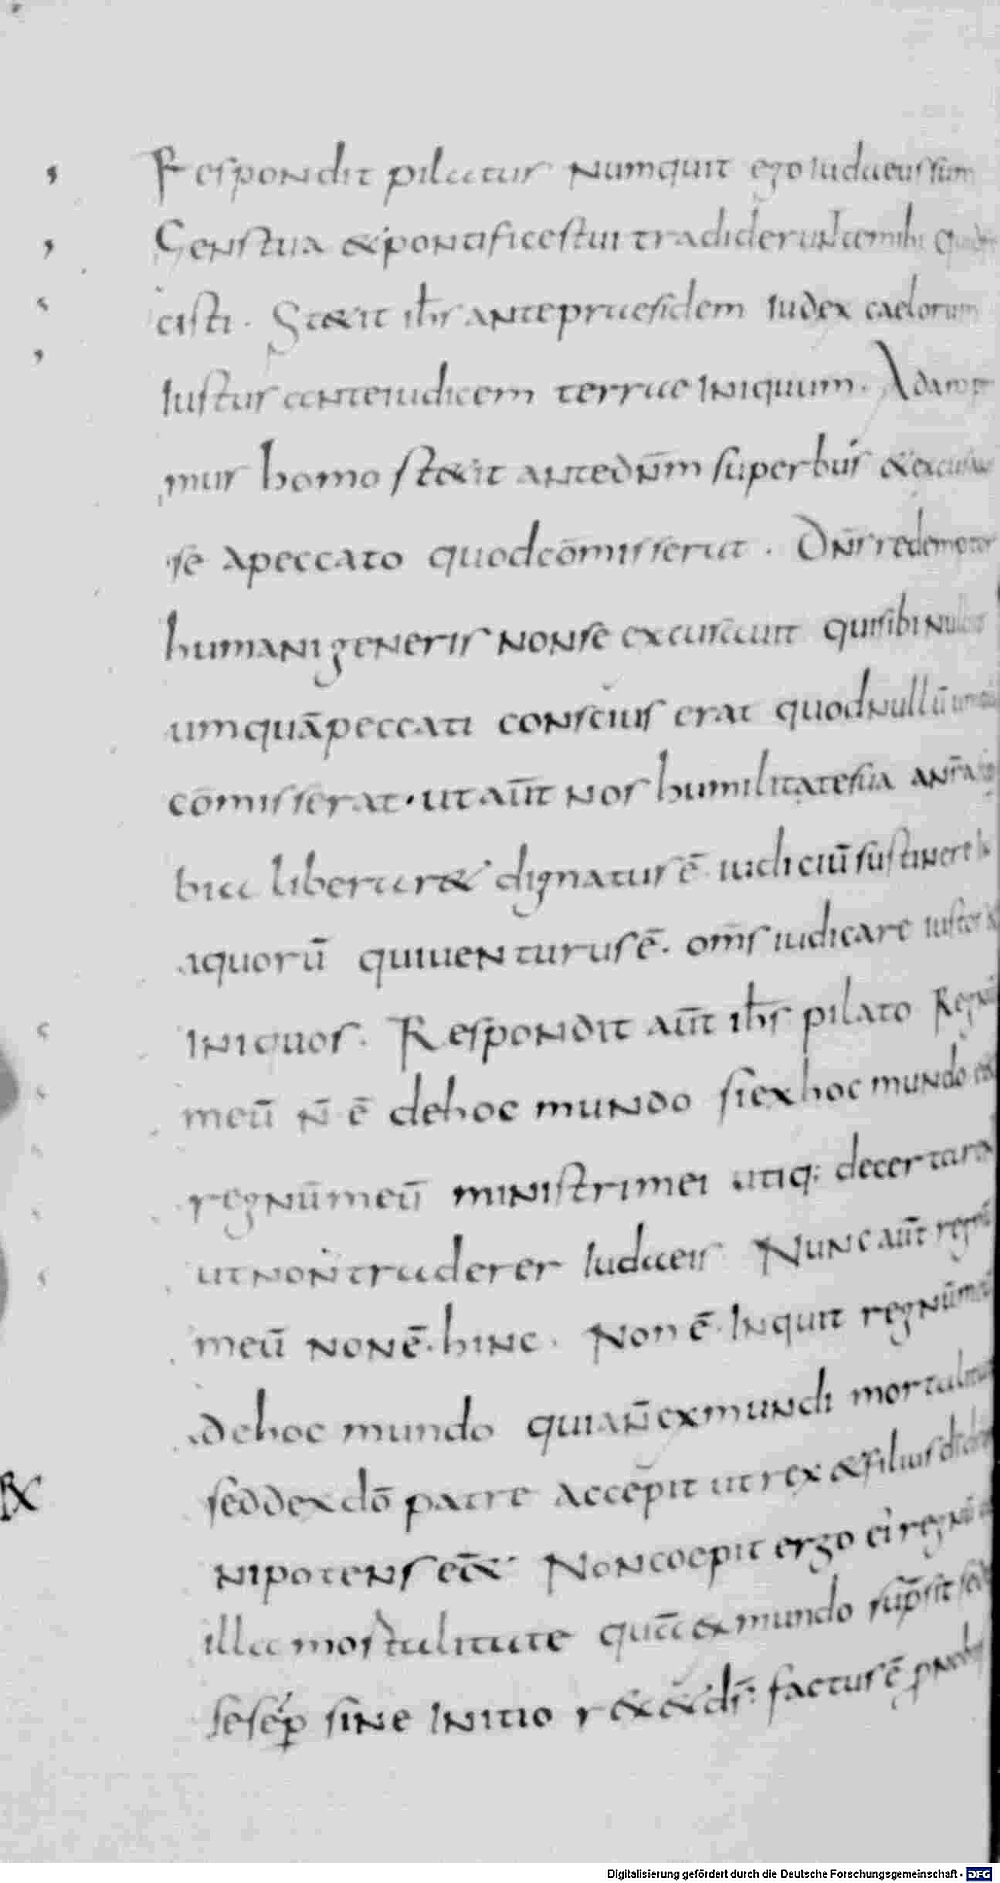 Respondit pilatus numquit ego iudaeus sum
Gens tua & pontifices tui tradiderunt te mihi
cisti. Stetit ihs ante praesidem iudex caelorum
iustus ante iudicem terrae iniquum. Ada
mus homo stetit ante dnm superbus &
se a peccato quod cōmisserat. Dns redemptor
humani generis non se excusauit qui sibi
umquā peccati conscius erat quod nullū
cōmisserat. ut aut nos humilitate sua a nra
bia liberaret dignatus ē iudiciū sustinere
aquorū qui uenturus ē. oms iudicare iustos
iniquos. Respondit aut ihs pilato Regnū
meū n ē de hoc mundo si ex hoc mundo
regnū meū ministri mei utiq; decertarent
ut non traderer iudaeis Nunc aut regnū
meū non ē. hinc. Non ē inquit regnū meū
de hoc mundo quia n ex mundi
sed dexdō patre accepit ut rex & filius
nipotens Non coepit ergo ei regnū
illa mostalitate ex mundo supsit
se sēp sine initio r& & ds. factus ē p nobis
Rx
Digitalisierung gefördert durch die Deutsche Forschungsgemeinschaft - DFG